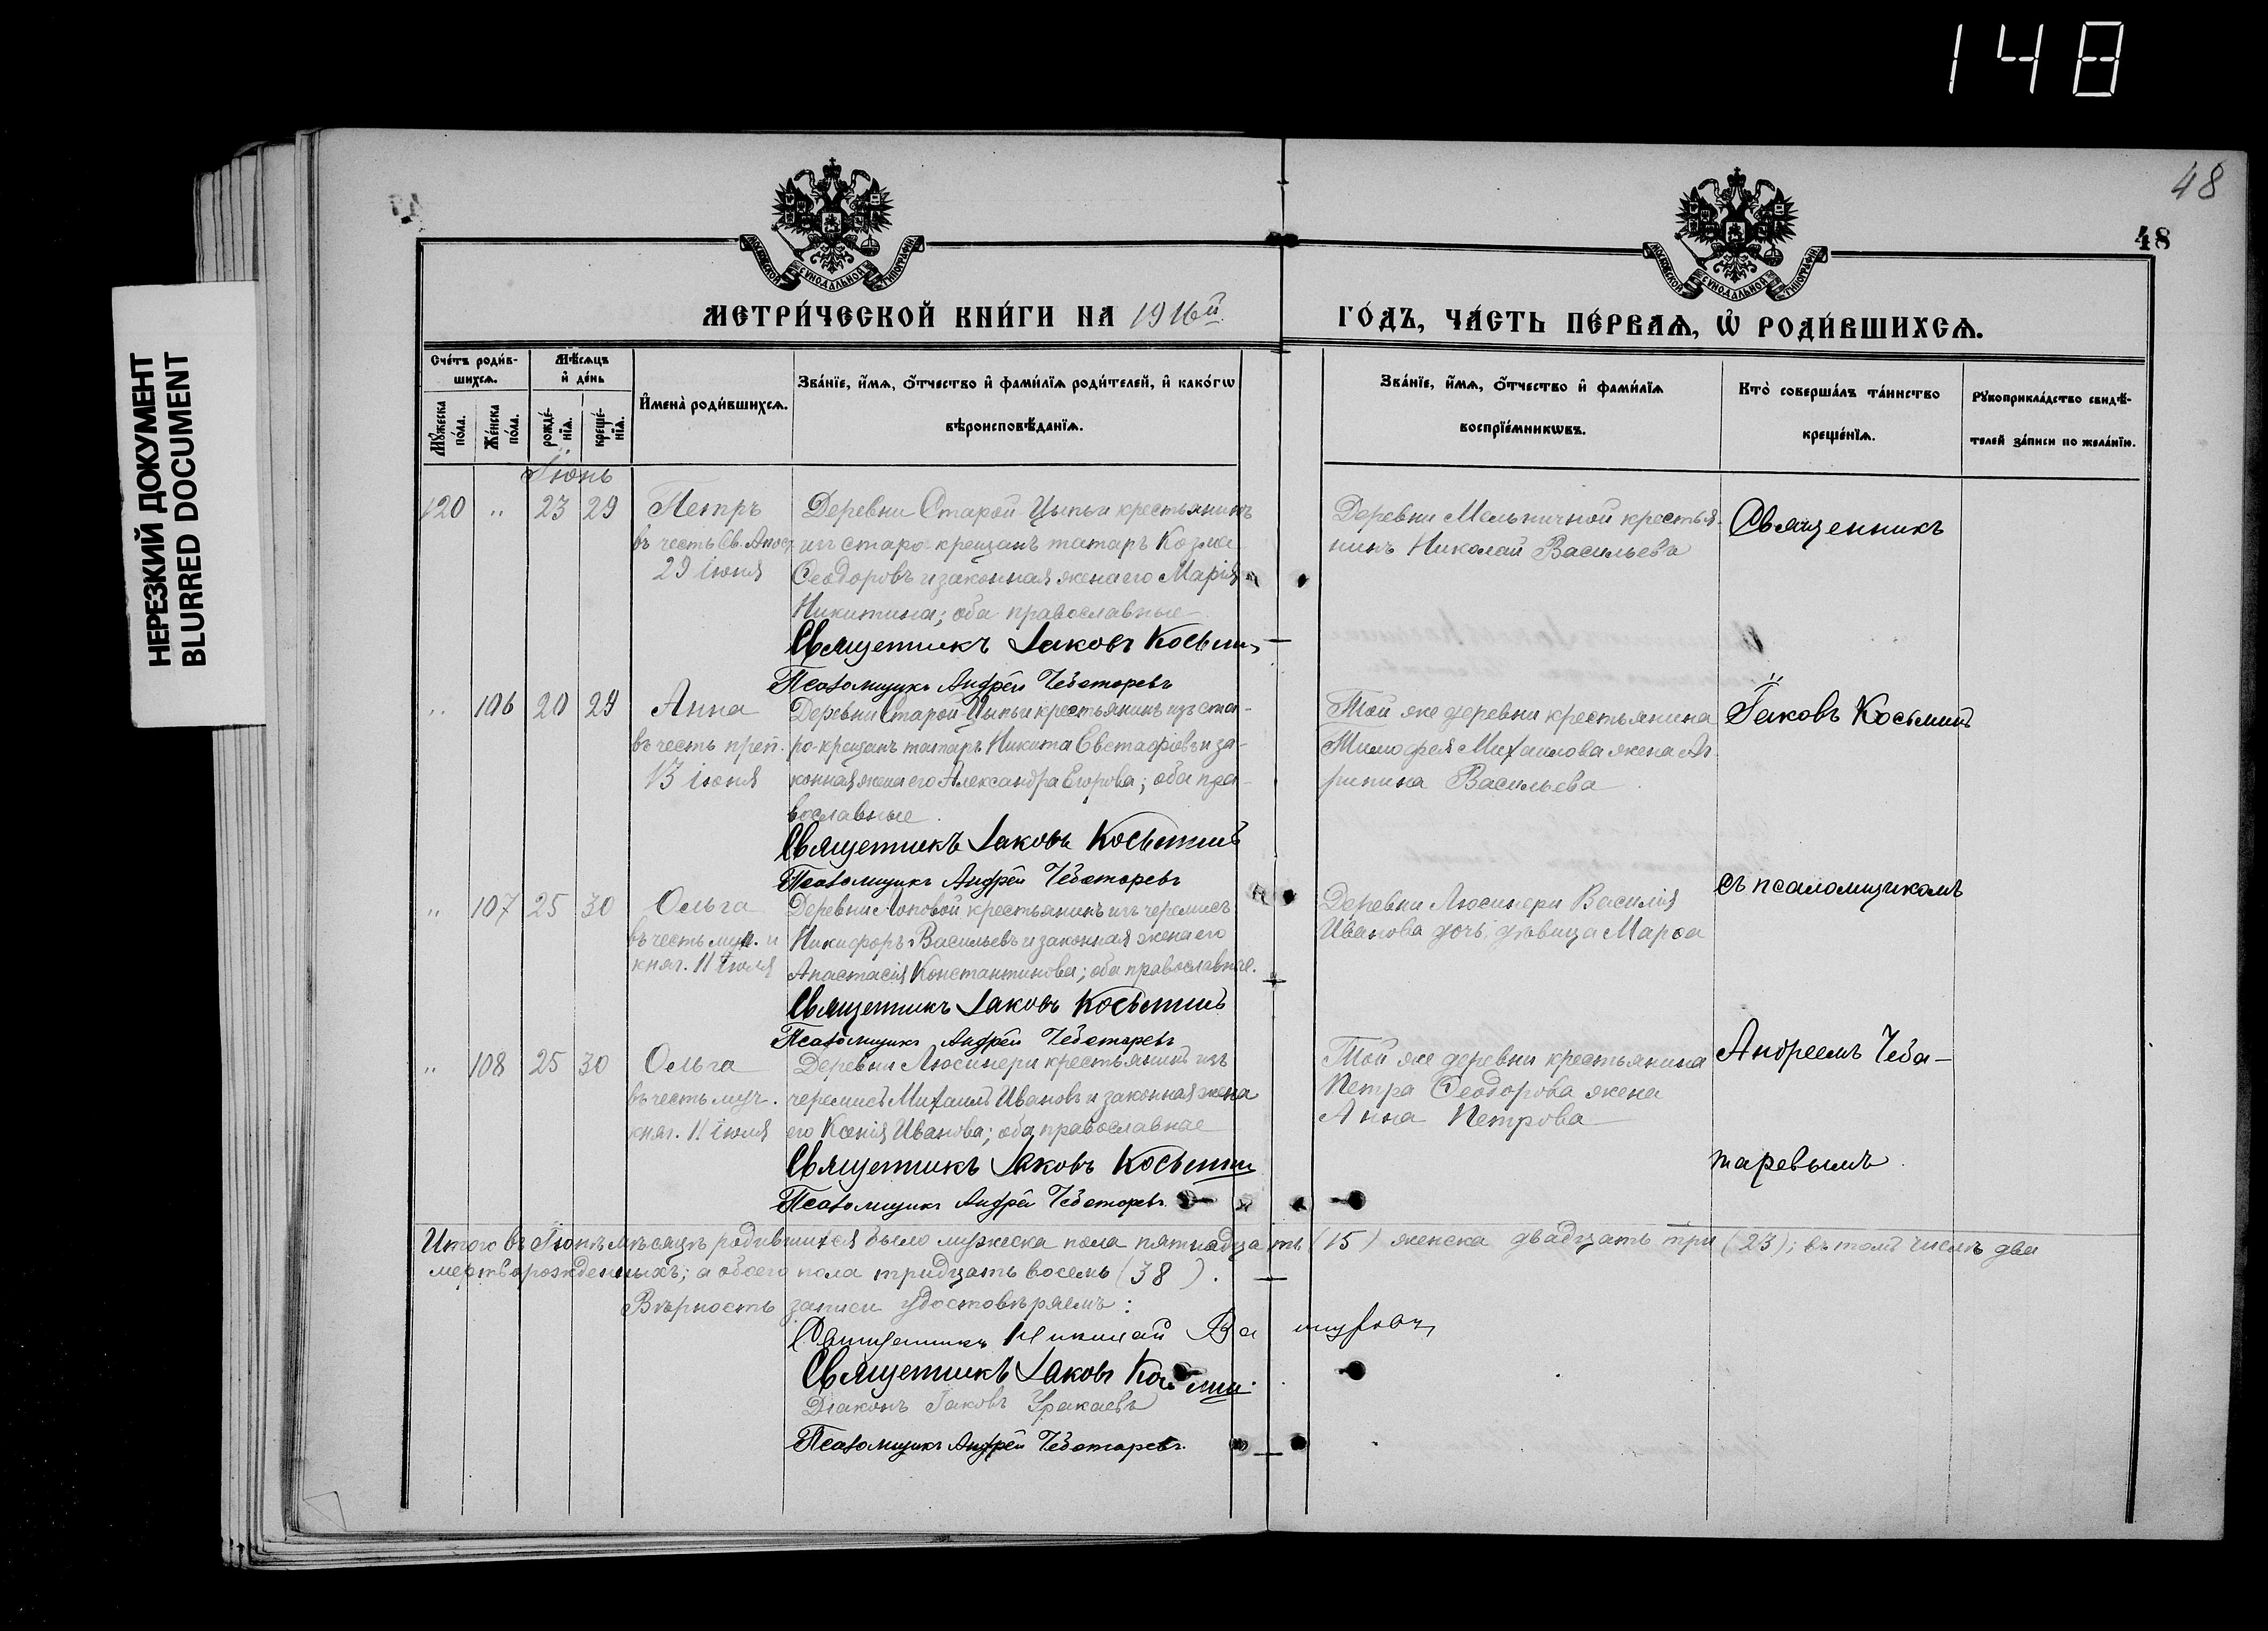 148
НЕРЕЗКИЙ ДОКУМЕНТ
BLURRED DOCUMENT
48
48
МОСКОВСКОЙ СУНОДАЛЬНОЙ ТИПОГРАФІИ
МОСКОВСКОЙ СУНОДАЛЬНОЙ ТИПОГРАФІИ
МЕТРИ́ЧЕСКОЙ КНИ́ГИ НА 1916й
ГО́ДЪ, ЧА́СТЬ ПЕ́РВАѦ, Ѡ҆ РОДИ́ВШИХСѦ.
Сче́тъ роди́в-
шихсѧ.
Мꙋ́жеска по́ла.
Же́нска по́ла.
Мѣ́сѧцъ
и҆ де́нь
рожде́-нїѧ.
креще́-нїѧ.
И҆мена̀ роди́вшихсѧ.
Зва́нїе, и҆́мѧ, ѻ҆́тчество и҆ фами́лїѧ роди́телей, и҆ како́гѡ
вѣроисповѣ́данїѧ.
Зва́нїе, и҆́мѧ, ѻ҆́тчество и҆ фами́лїѧ
воспрїе́мникѡвъ.
Кто̀ соверша́лъ та́инство
креще́нїѧ.
Рꙋкоприкла́дство свидѣ́-
телей за́писи по жела́нїю.
Іюнь
120 " 23 29 Петръ
въ честь Св. Апост.
29 іюня
Деревни Старой Цыпьи крестьянинъ
изъ старо-крещанъ татаръ Козма
Ѳеодоровъ и законная жена его Марія
Никитина; оба православные
Священникъ Іаковъ Косьмин
Псаломщикъ Андрей Чеботаревъ
Деревни Мельничной крестья-
нинъ Николай Васильевъ
Священникъ
" 106 20 29 Анна
въ честь преп.
13 іюня
Деревни Старой Цыпьи крестьянинъ изъ ста-
ро-крещанъ татаръ Никита Евстафіовъ и за-
конная жена его Александра Егорова; оба пра-
вославные.
Священникъ Іаковъ Косьминъ
Псаломщикъ Андрей Чеботаревъ
Той же деревни крестьянина
Тимофея Михаилова жена Аг-
рипина Васильева
Іаковъ Косьминъ
" 107 25 30 Ольга
въ честь муч. и
княг. 11 іюля
Деревни Лоповой крестьянинъ изъ черемисъ
Никифоръ Васильевъ и законная жена его
Анастасія Константинова; оба православные.
Священникъ Іаковъ Косьминъ
Псаломщикъ Андрей Чеботаревъ
Деревни Люсинери Василія
Иванова дочь, дѣвица Марѳа
съ псаломщикомъ
" 108 25 30 Ольга
въ честь муч.
княг. 11 іюля
Деревни Люсинери крестьянинъ изъ
черемисъ Михаилъ Ивановъ и законная жена
его Ксенія Иванова; оба православные
Священникъ Іаковъ Косьмин
Псаломщикъ Андрей Чеботаревъ
Той же деревни крестьянина
Петра Ѳеодорова жена
Анна Петрова
Андреемъ Чебо-
таревымъ.
Итого въ Іюнѣ мѣсяцѣ родившихся было мужеска пола пятнадцать (15) женска двадцать три (23); въ томъ числѣ два
мертворожденныхъ; а обоего пола тридцать восемь (38).
Вѣрность записи удостовѣряемъ:
Священникъ Николай
Священникъ Іаковъ Косьмин
Діаконъ Іаковъ Уракаевъ
Псаломщикъ Андрей Чеботаревъ.